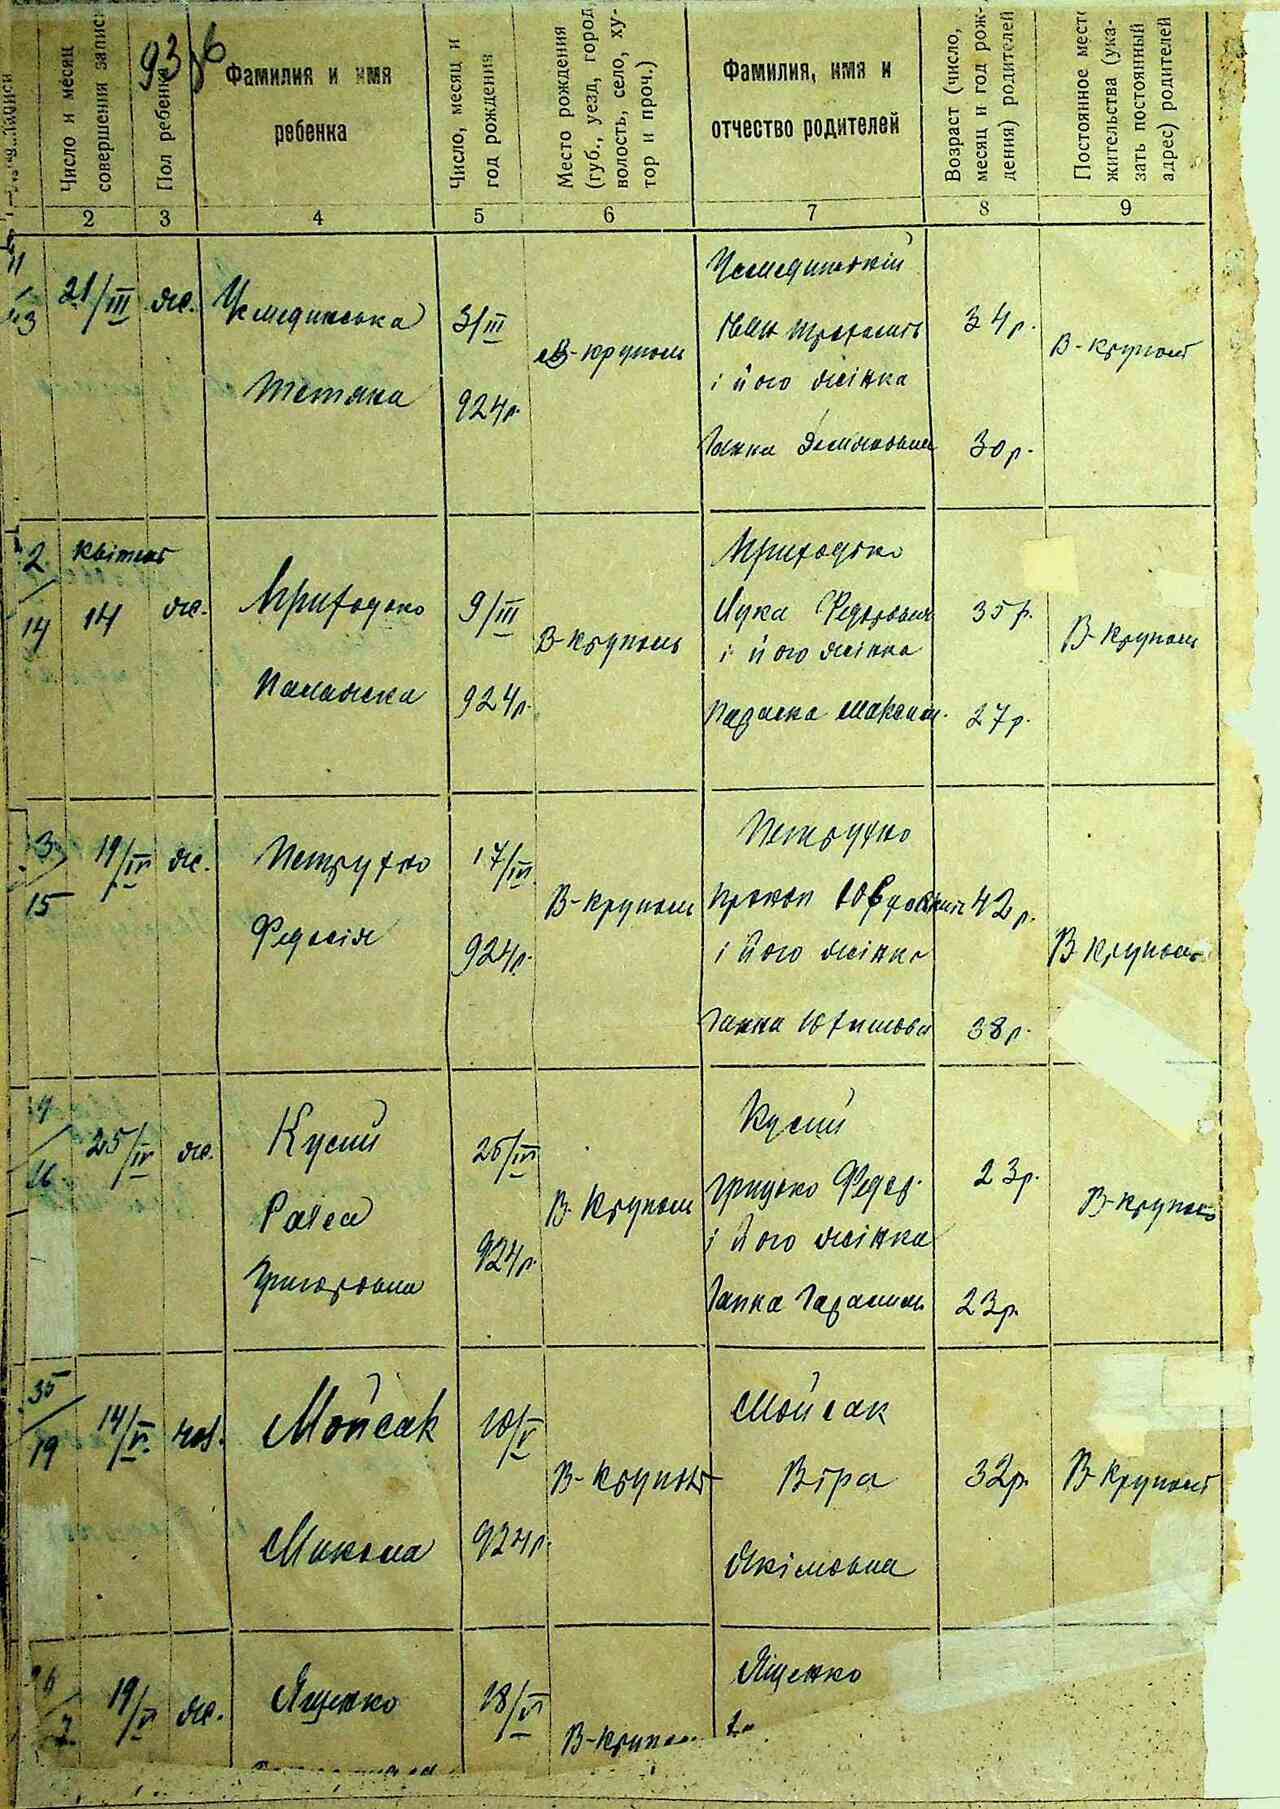 93
Число и месяц
совершения запис
Пол ребенка
Фамилия и имя
ребенка
Число, месяц и
год рождения
Место рождения
(губ., уезд, город,
волость, село, ху-
тор и проч.)
Фамилия, имя и
отчество родителей
Возраст (число,
месяц и год рож-
дения) родителей
Постоянное место
жительства (ука-
зать постоянный
адрес) родителей
2 3 4 5 6 7 8 9
21/III
жс.
Тетяна
3/III
924р.
В-круполь
Іван
і його жінка
Ганна
34р.
30р.
В-круполь
2
14
квітня
14
жс.
Приходько
Палажка
9/III
924р.
В-круполь
Приходько
Лука Федорович
і його жінка
Параска Максим.
35р.
27р.
В-круполь
3
15
19/IV
жс.
Петрухно
Федосія
17/III
924р.
В-круполь
Петрухно
Прокоп
і його жінка
Ганна Юхимова
42р.
38р.
В круполь
4
16
25/IV
жс.
Кусий
Раїса
Григоровна
25/IV
924р.
В-Круполь
Кусий
Грицько Федор.
і його жінка
Ганна Гарасим
23р.
23р.
В-круполь
35
19
14/V.
чол.
Мойсак
Микола
10/V
924р.
В-круполь
Мойсак
Віра
Якімовна
32р.
В-Круполь
19/V
жс.
Ященко
18/V
В-Круполь
Ященко